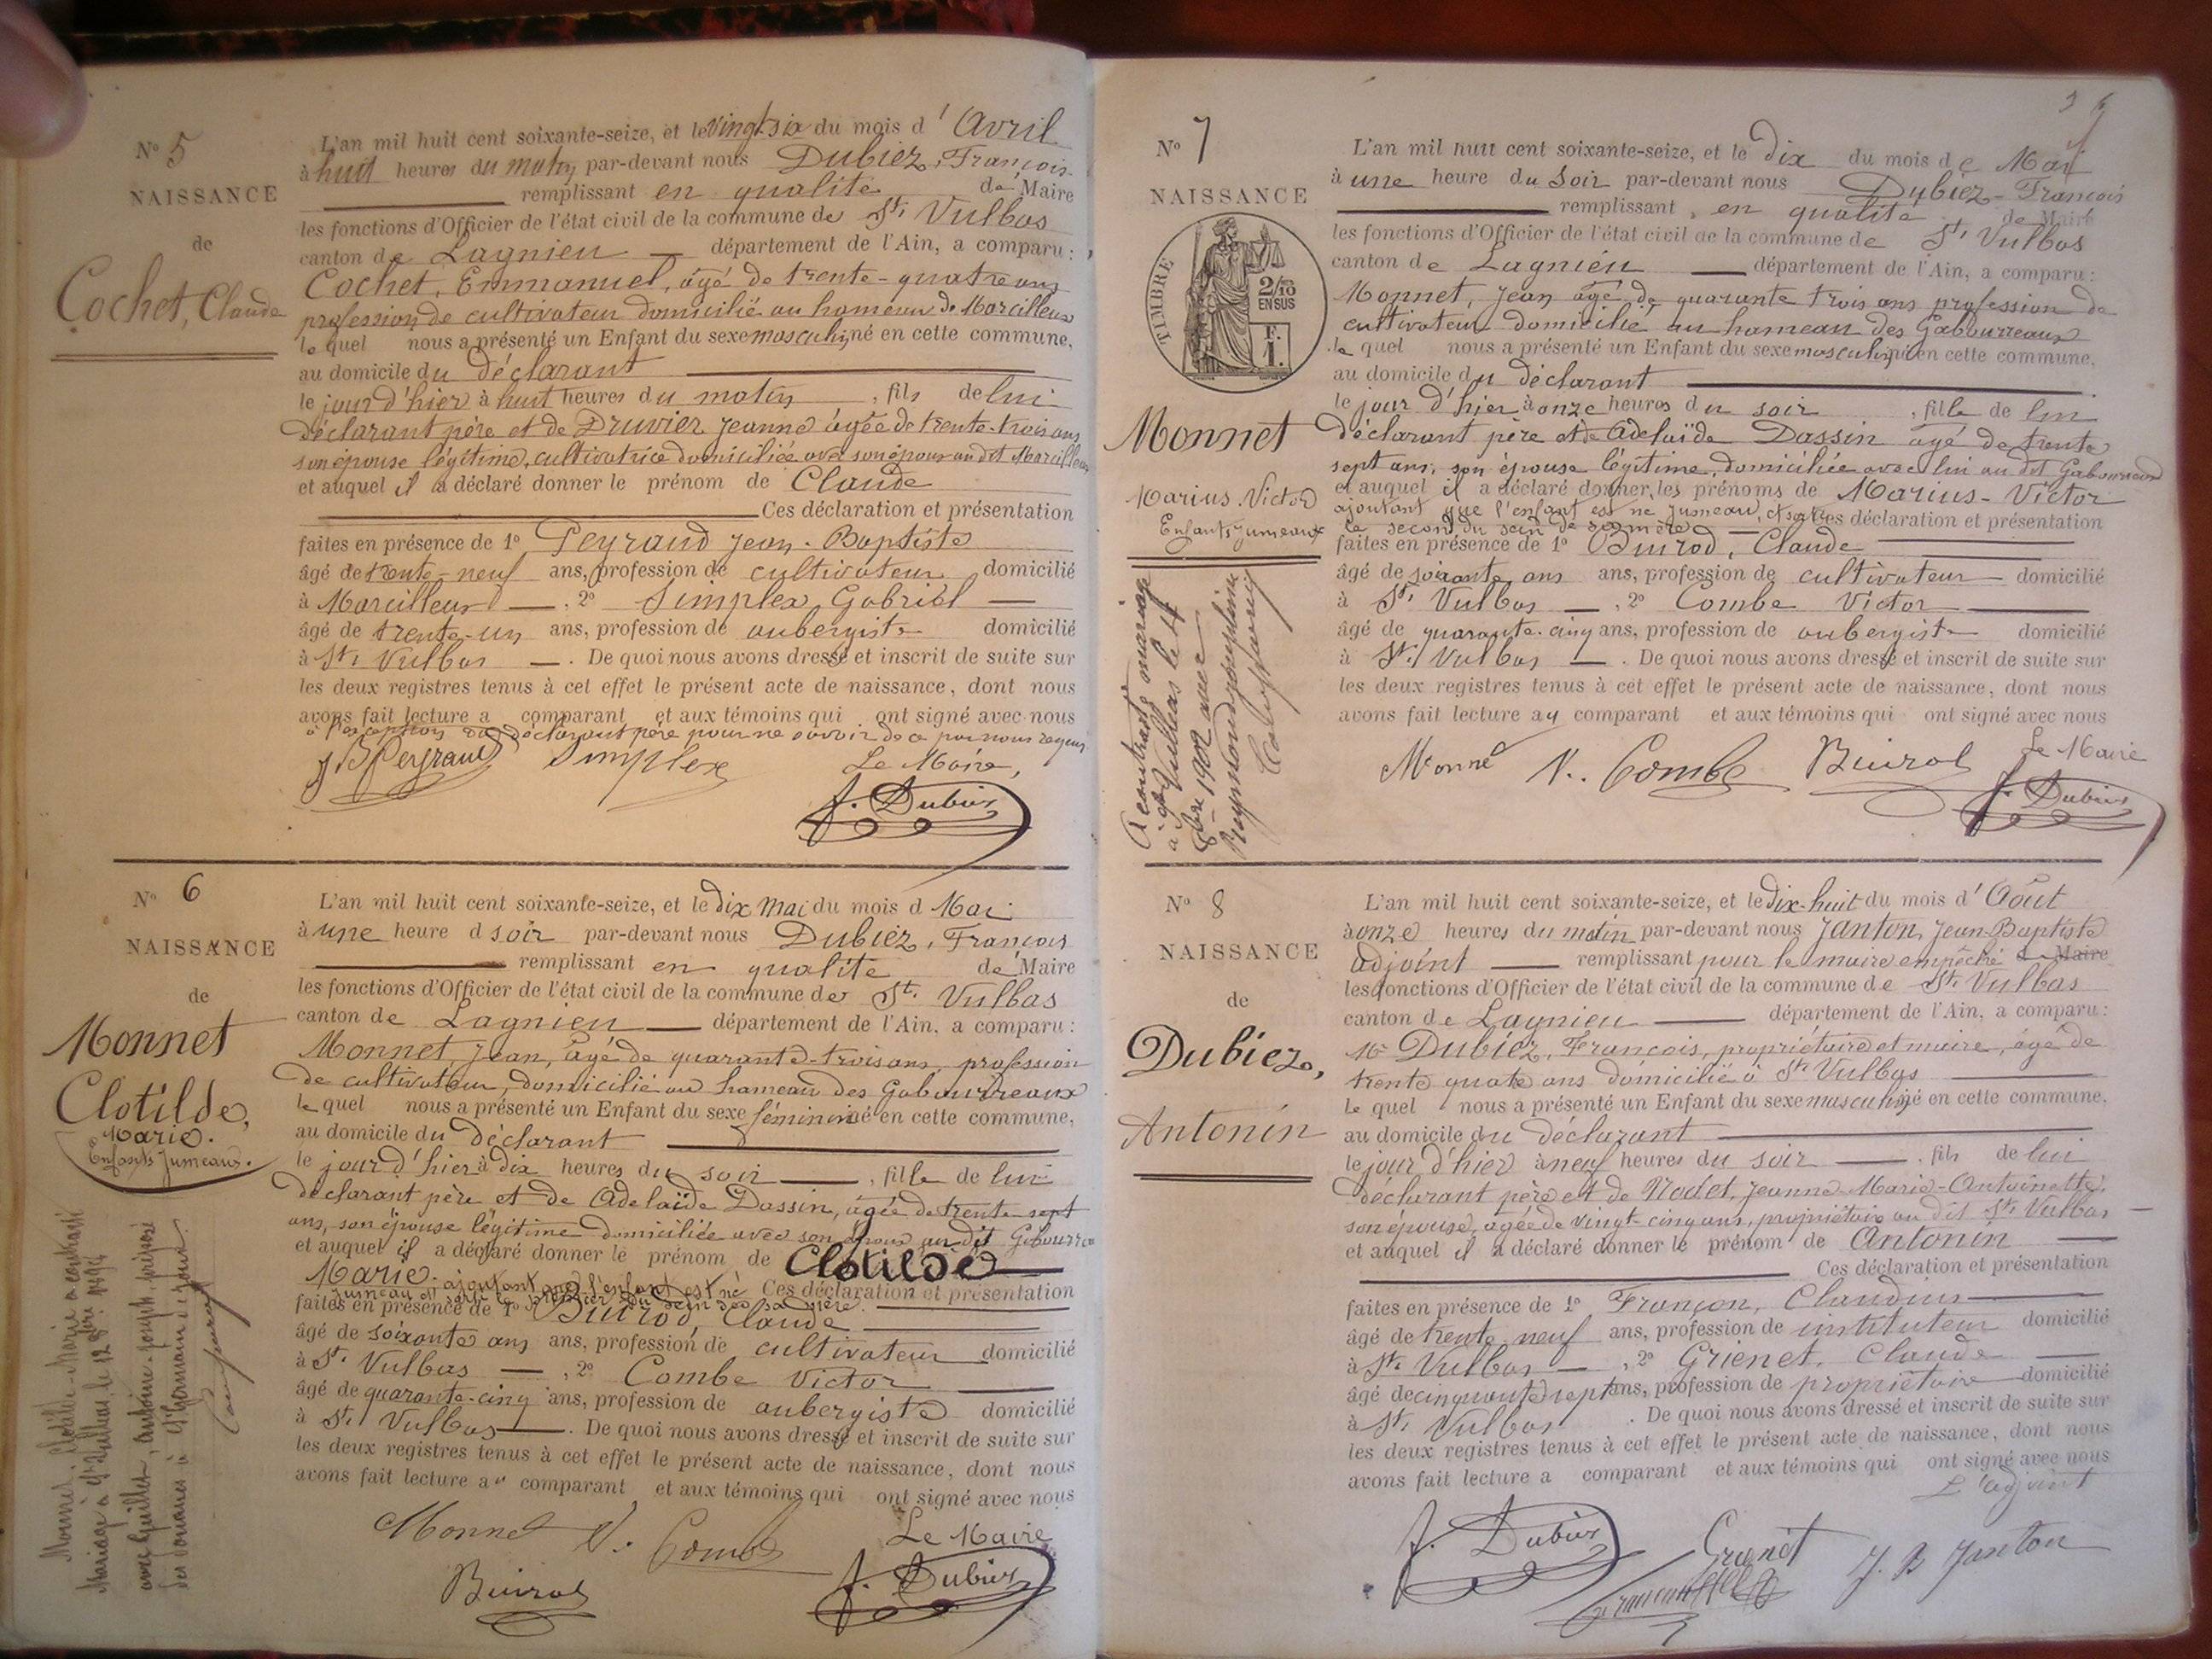 N° 5
NAISSANCE
de
Cochet, Claude
L'an mil huit cent soixante-seize, et le vingt-six du mois d' Avril
à huit heures du matin par-devant nous Dubiez, François
remplissant en qualité de Maire
les fonctions d'Officier de l'état civil de la commune de St. Vulbas
canton de Lagnieu département de l'Ain, a comparu :
Cochet, Emmanuel, âgé de trente-quatre ans
profession de cultivateur domicilié au hameau de Marcilleux
le quel nous a présenté un Enfant du sexe masculin, né en cette commune,
au domicile du déclarant
le jour d'hier à huit heures du matin, fils de lui
déclarant père et de Druvier Jeanne âgée de trente-trois ans
son épouse légitime, cultivatrice domiciliée avec son époux au dit Marcilleux
et auquel il a déclaré donner le prénom de Claude
Ces déclaration et présentation
faites en présence de 1° Peyraud Jean-Baptiste
âgé de trente-neuf ans, profession de cultivateur domicilié
à Marcilleux, 2° Simplex Gabriel
âgé de trente-un ans, profession de aubergiste domicilié
à St. Vulbas. De quoi nous avons dressé et inscrit de suite sur
les deux registres tenus à cet effet le présent acte de naissance, dont nous
avons fait lecture a comparant et aux témoins qui ont signé avec nous
à l'exception du déclarant père pour ne savoir de ce par nous requis
J B Peyraud Simplex Le Maire,
F. Dubiez
N° 6
NAISSANCE
de
Monnet
Clotilde,
Marie.
Enfants Jumeaux.
Monnet, Clotilde-Marie a contracté
Mariage à St Vulbas, le 12
avec Guillet, Antoine-Joseph, préposé
des douanes à St Germain
L'an mil huit cent soixante-seize, et le dix mai du mois d Mai
à une heure d soir par-devant nous Dubiez, François
remplissant en qualité de Maire
les fonctions d'Officier de l'état civil de la commune de St. Vulbas
canton de Lagnieu département de l'Ain, a comparu :
Monnet, Jean, âgé de quarante-trois ans, profession
de cultivateur, domicilié au hameau des Gabourreaux
le quel nous a présenté un Enfant du sexe féminin né en cette commune,
au domicile du déclarant
le jour d'hier à dix heures du soir, fille de lui
déclarant père et de Adelaïde Dassin, âgée de trente-sept
ans, son épouse légitime domiciliée avec son époux au dit Gabourreaux
et auquel il a déclaré donner le prénom de Clotilde
Marie. ajoutant que l'enfant est né Ces déclaration et présentation
jumeau et sorti le premier du sein de sa mère.
faites en présence de 1° Buirod, Claude
âgé de soixante ans ans, profession de cultivateur domicilié
à St. Vulbas, 2° Combe Victor
âgé de quarante-cinq ans, profession de aubergiste domicilié
à St. Vulbas. De quoi nous avons dressé et inscrit de suite sur
les deux registres tenus à cet effet le présent acte de naissance, dont nous
avons fait lecture au comparant et aux témoins qui ont signé avec nous
Monnet V. Combe Le Maire
Buirod F. Dubiez
N° 7
NAISSANCE
TIMBRE
2/10
EN SUS
F.
1.
Monnet
Marius. Victor
Enfants jumeaux
A contracté mariage
à St Vulbas le 4
8bre 1902 avec
L'an mil huit cent soixante-seize, et le dix du mois de Mai
à une heure du soir par-devant nous Dubiez-François
remplissant en qualité de Maire
les fonctions d'Officier de l'état civil de la commune de St. Vulbas
canton de Lagnieu département de l'Ain, a comparu :
Monnet, Jean âgé de quarante trois ans profession de
cultivateur domicilié au hameau des Gabourreaux
le quel nous a présenté un Enfant du sexe masculin né en cette commune,
au domicile du déclarant
le jour d'hier à onze heures du soir, fille de lui
déclarant père et de Adelaïde Dassin agé de trente
sept ans, son épouse légitime, domiciliée avec lui au dit Gabourreaux
et auquel il a déclaré donner les prénoms de Marius-Victor
ajoutant que l'enfant est né jumeau, et sorti Ces déclaration et présentation
le second du sein de sa mère
faites en présence de 1° Buirod, Claude
âgé de soixante ans ans, profession de cultivateur domicilié
à St. Vulbas, 2° Combe Victor
âgé de quarante-cinq ans, profession de aubergiste domicilié
à St. Vulbas. De quoi nous avons dressé et inscrit de suite sur
les deux registres tenus à cet effet le présent acte de naissance, dont nous
avons fait lecture au comparant et aux témoins qui ont signé avec nous
Monné V. Combe Buirod Le Maire
F. Dubiez
N° 8
NAISSANCE
de
Dubiez,
Antonin
L'an mil huit cent soixante-seize, et le dix-huit du mois d' Août
à onze heures du matin par-devant nous Janton, Jean-Baptiste
adjoint remplissant pour le maire empêché de Maire
les fonctions d'Officier de l'état civil de la commune de St. Vulbas
canton de Lagnieu département de l'Ain, a comparu :
Mr Dubiez, François, propriétaire et maire, âgé de
trente quatre ans domicilié à St. Vulbas
le quel nous a présenté un Enfant du sexe masculin né en cette commune,
au domicile du déclarant
le jour d'hier à neuf heures du soir, fils de lui
déclarant père et de Nodet, Jeanne-Marie-Antoinette,
son épouse, agée de vingt-cinq ans, propriétaire au dit St. Vulbas
et auquel il a déclaré donner le prénom de Antonin
Ces déclaration et présentation
faites en présence de 1° Françon, Claudius
âgé de trente-neuf ans, profession de instituteur domicilié
à St. Vulbas, 2° Grienet, Claude
âgé de cinquante-sept ans, profession de propriétaire domicilié
à St. Vulbas. De quoi nous avons dressé et inscrit de suite sur
les deux registres tenus à cet effet le présent acte de naissance, dont nous
avons fait lecture a comparant et aux témoins qui ont signé avec nous
L'adjoint
F. Dubiez Grienet J. B Janton